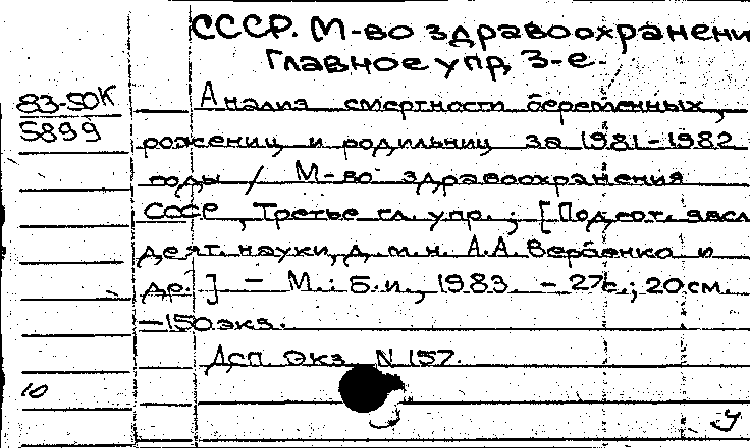 СССР. М-во здравоохранени
Главное упр, 3-е.
83-50К
5899
Анализ смертности беременных,
рожениц и родильниц за 1981-1982
годы / М-во здравоохранения
СССР, Третье гл. упр. ; [Подгот. засл.
деят. науки, д. м. н. А.А. Вербенко и
др. ]. - М. : Б. и., 1983. - 27с.; 20 см.
-150 экз.
Дсп Экз N 157.
10
У